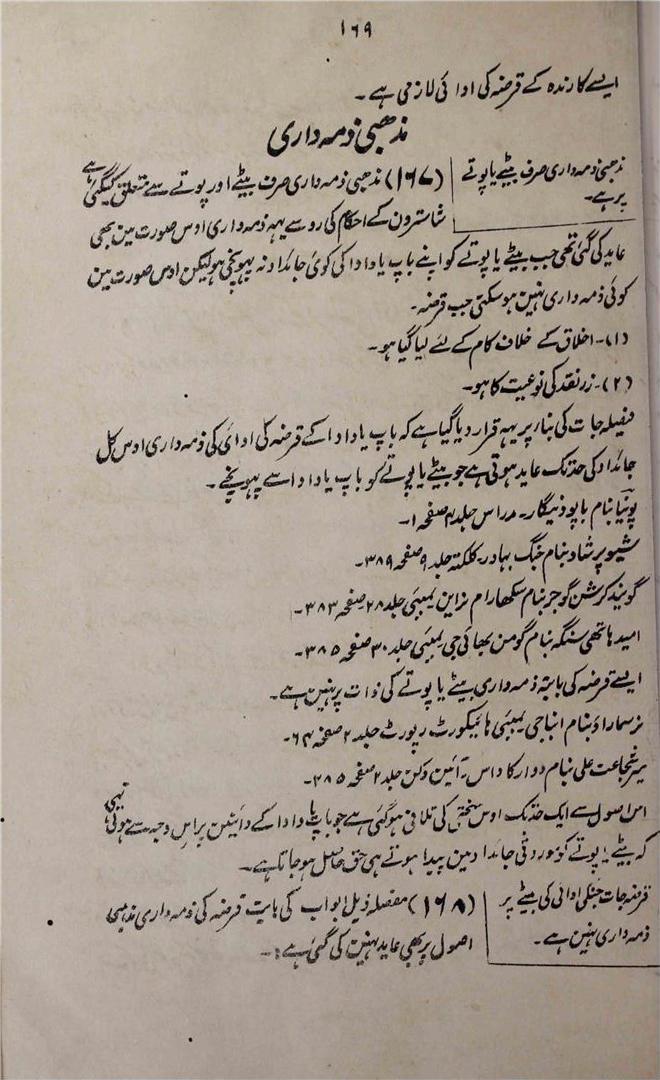 ۱۶۹
ایسے کارندہ کے قرضہ کی ادائی لازمی ہے ۔
مذہبی ذمہ داری
مذہبی ذمہ داری صرف بیٹے یا پوتے
پر ہے۔
(۱۶۷) مذہبی ذمہ داری صرف بیٹے اور پوتے سے متعلق کیگئی ہے
شاسترون کے احکام کی رو سے یہہ ذمہ داری اوس صورت مین بھی
عاید کی گئی تھی جب بیٹے یا پوتے کو اپنے باپ یا دادا کی کوئی جائداد نہ پہونچی ہو لیکن اوس صورت مین
کوئی ذمہ داری نہین ہو سکتی جب قرضہ۔
(۱)۔ اخلاق کے خلاف کام کے لئے لیا گیا ہو۔
(۲)۔ زر نقد کی نوعیت کا ہو۔
فیصلہ جات کی بنا پر یہہ قرار دیا گیا ہے کہ باپ یا دادا کے قرضہ کی ادائی کی ذمہ داری اوس کل
جائداد کی حد تک عاید ہوتی ہے جو بیٹے یا پوتے کو باپ یا دادا سے پہونچے ۔
پونیّا بنام باپو دنیگار۔ مدراس جلد ۴ صفحہ ۱۔
شیو پرشاد بنام جنگ بہادر۔ کلکتہ جلد ۹ صفحہ ۳۸۹۔
گوبند کرشن گوجر بنام سکھارام نراین بمبئی جلد ۲۸ صفحہ ۳۸۳۔
امید ہاتھی سنگہ بنام گومن بھائی جی بمبئی جلد ۳۰ صفحہ ۳۸۵۔
ایسے قرضہ کی بابتہ ذمہ داری بیٹے یا پوتے کی ذات پر نہین ہے۔
نرسمہا راؤ بنام انباجی بمبئی ہائیکورٹ رپورٹ جلد ۲ صفحہ ۶۴۔
میر شجاعت علی بنام دوارکا داس۔ آئین دکن جلد ۲ صفحہ ۲۸۵۔
اس اصول سے ایک حد تک اوس سختی کی تلافی ہو گئی ہے جو باپ یا دادا کے دائنین پر اس وجہ سے ہوتی تہی
کہ بیٹے یا پوتے کو موروثی جائداد مین پیدا ہوتے ہی حق حاصل ہو جاتا ہے۔
قرضہ جات جنکی ادائی کی بیٹے پر
ذمہ داری نہین ہے۔
(۱۶۸) مفصلہ ذیل ابواب کی بابت قرضہ کی ذمہ داری مذہبی
اصول پر بھی عاید نہین کی گئی ہے:۔